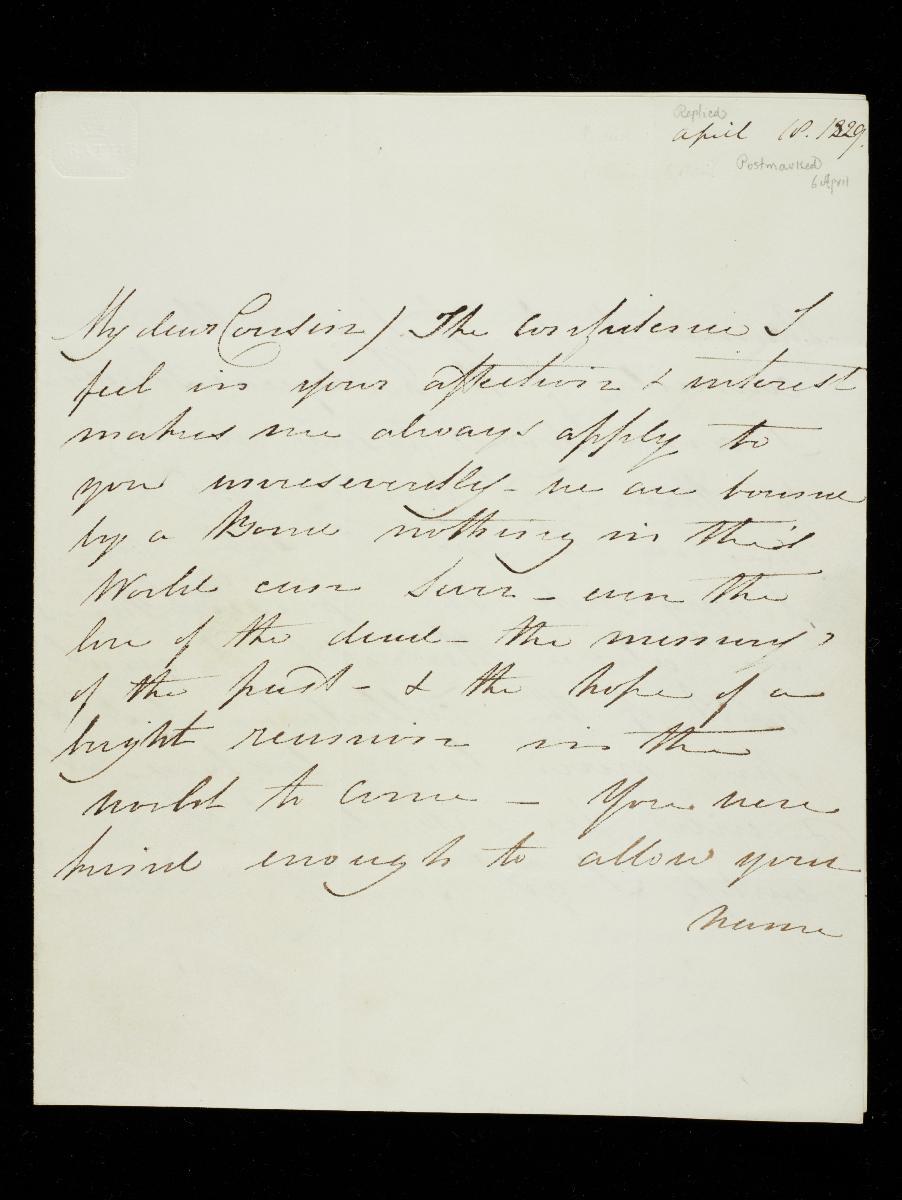 Replied
april 18. 1829.
Postmarked
6 April
My dear Cousin / The confidence I
feel in your affection & interest
makes me always apply to
you unreservedly - we are bound
by a Bond nothing in this
World can sever - even the
love of the dead - the memory
of the past - & the hope of a
bright reunion in the
world to come - You were
kind enough to allow your
name